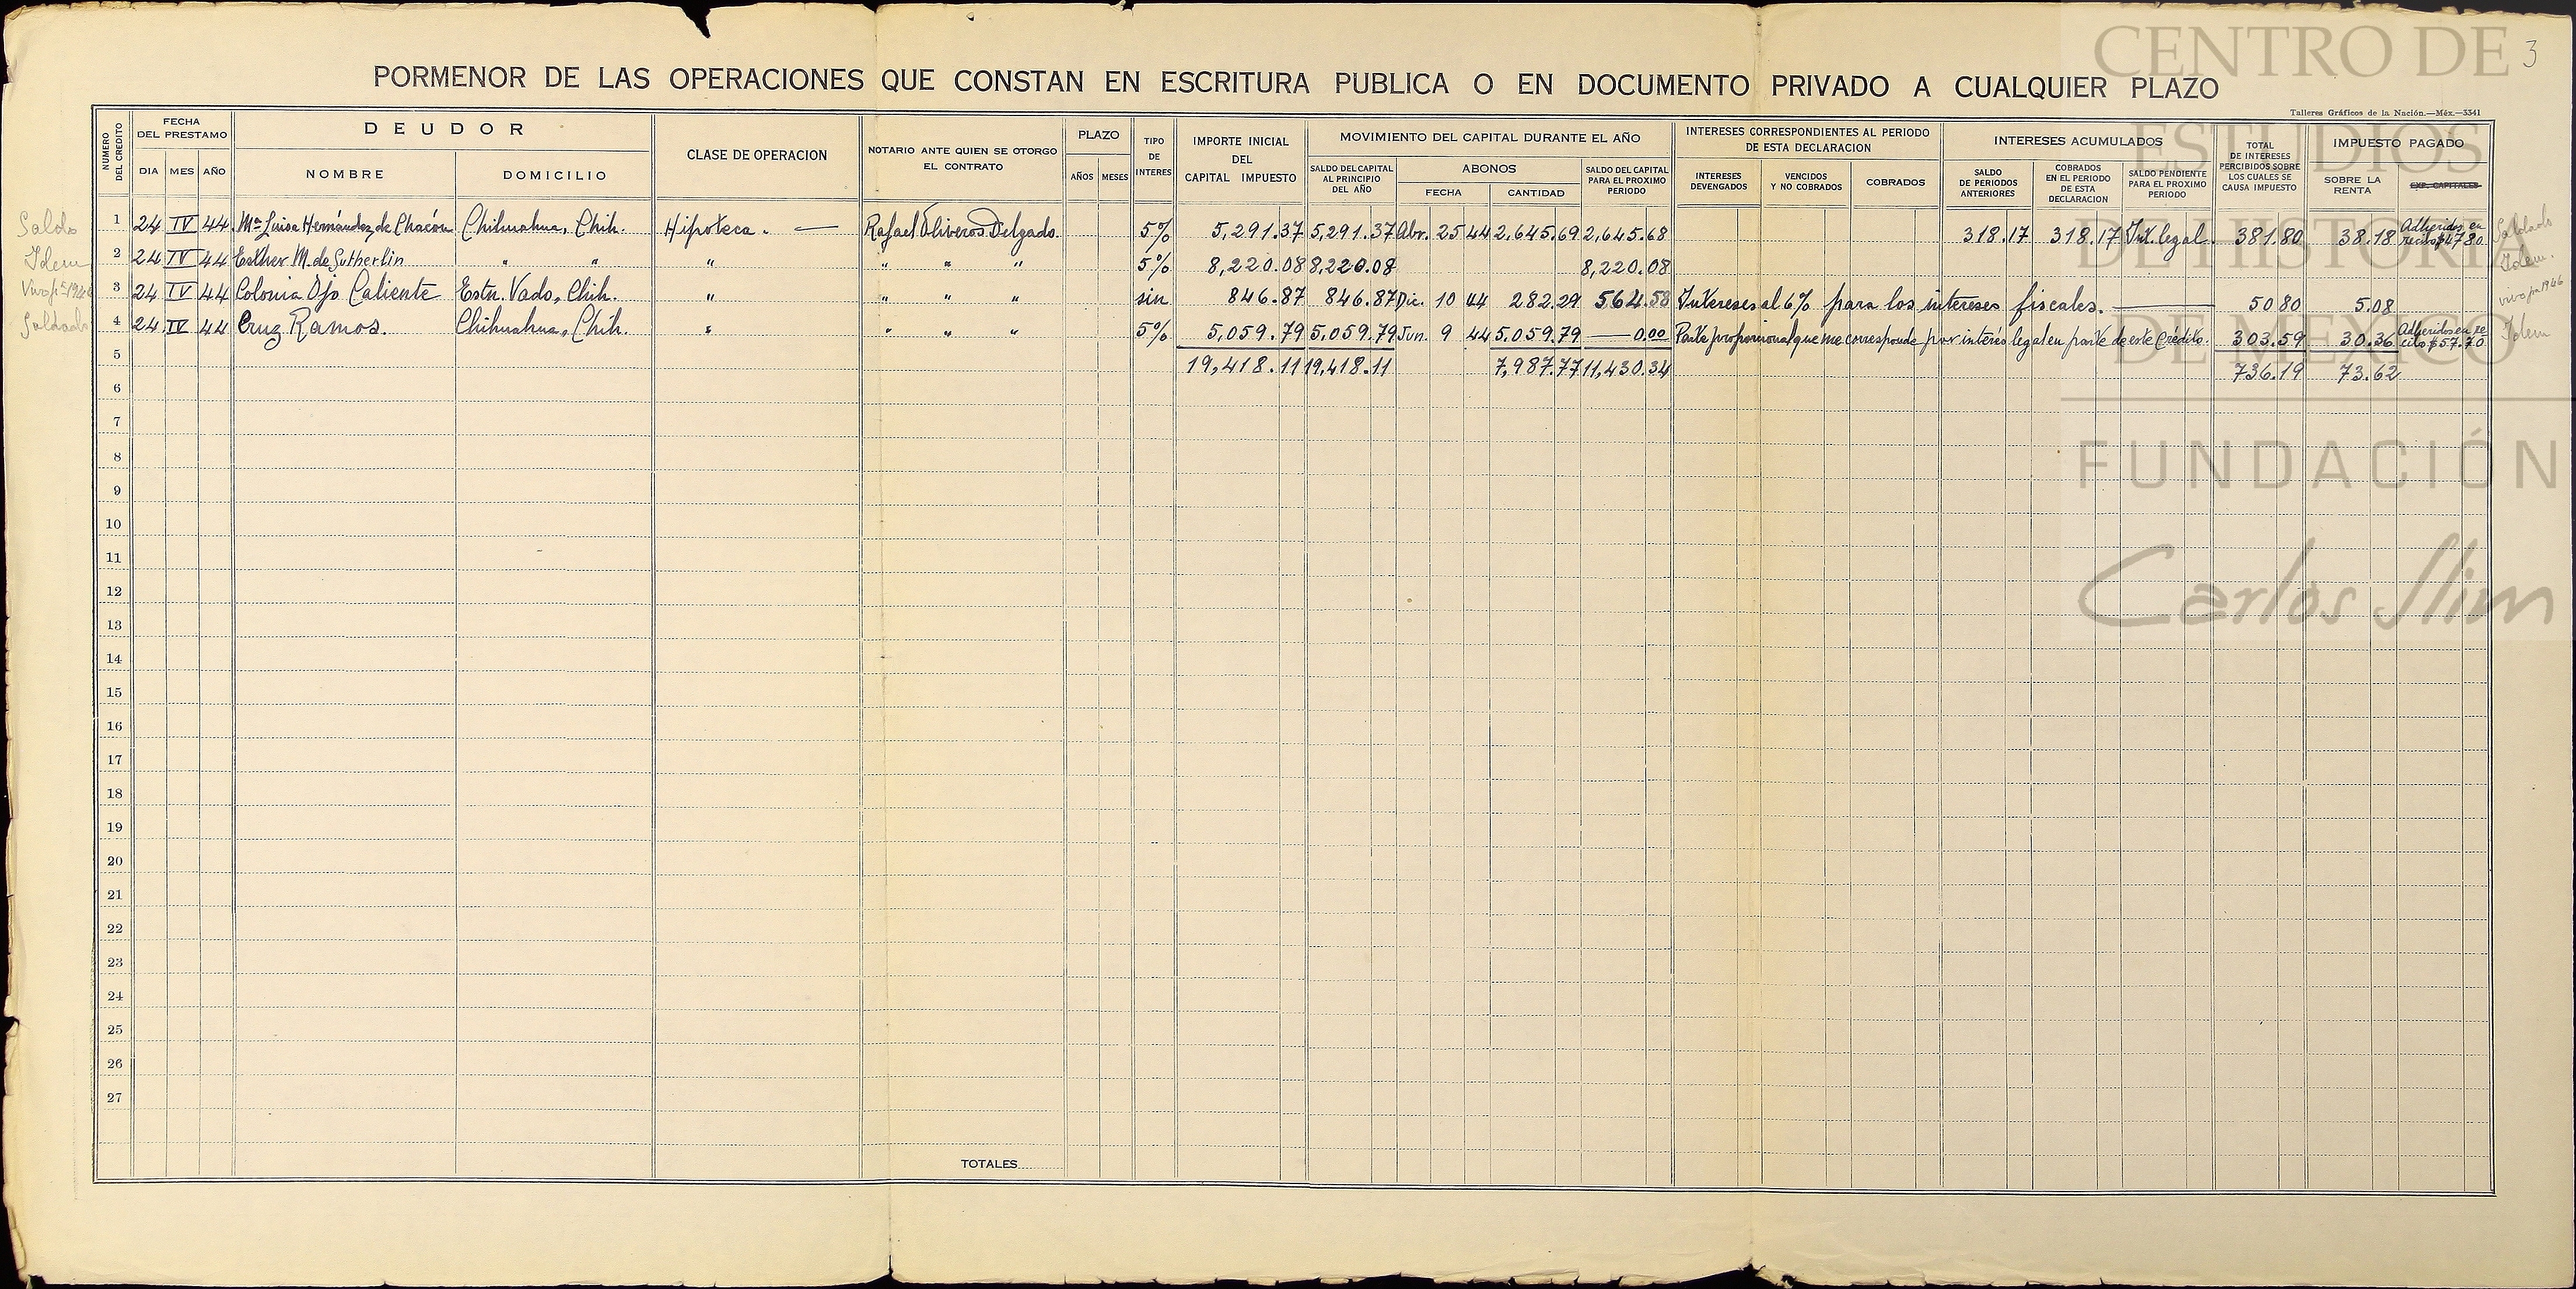 3
PORMENOR DE LAS OPERACIONES QUE CONSTAN EN ESCRITURA PUBLICA O EN DOCUMENTO PRIVADO A CUALQUIER PLAZO
Talleres Gráficos de la Nación.—Méx.—3341
NUMERO DEL CREDITO
FECHA DEL PRESTAMO
DIA MES AÑO
DEUDOR
NOMBRE DOMICILIO
CLASE DE OPERACION
NOTARIO ANTE QUIEN SE OTORGO EL CONTRATO
PLAZO
AÑOS MESES
TIPO DE INTERES
IMPORTE INICIAL DEL CAPITAL IMPUESTO
MOVIMIENTO DEL CAPITAL DURANTE EL AÑO
SALDO DEL CAPITAL AL PRINCIPIO DEL AÑO
ABONOS
FECHA CANTIDAD
SALDO DEL CAPITAL PARA EL PROXIMO PERIODO
INTERESES CORRESPONDIENTES AL PERIODO DE ESTA DECLARACION
INTERESES DEVENGADOS
VENCIDOS Y NO COBRADOS
COBRADOS
INTERESES ACUMULADOS
SALDO DE PERIODOS ANTERIORES
COBRADOS EN EL PERIODO DE ESTA DECLARACION
SALDO PENDIENTE PARA EL PROXIMO PERIODO
TOTAL DE INTERESES PERCIBIDOS SOBRE LOS CUALES SE CAUSA IMPUESTO
IMPUESTO PAGADO
SOBRE LA RENTA
EXP. CAPITALES
Saldo 1 24 IV 44 Mª Luisa Hernández de Chacón Chihuahua, Chih. Hipoteca. — Rafael Oliveros Delgado. 5% 5,291.37 5,291.37 Abr. 25 44 2,645.69 2,645.68 318.17 318.17 Int. legal. 381.80 38.18 Adheridos en recibo $47.80 Saldado
Idem 2 24 IV 44 Esther M. de Sutherlin " " " " " " 5% 8,220.08 8,220.08 8,220.08 Idem.
3 24 IV 44 Colonia Ojo Caliente Estn. Vado, Chih. " " " " sin 846.87 846.87 Dic. 10 44 282.29 564.58 Intereses al 6% para los intereses fiscales. 50 80 5.08 vivo pa 1946
Saldado 4 24 IV 44 Cruz Ramos. Chihuahua, Chih. " " " " 5% 5,059.79 5,059.79 Jun. 9 44 5,059.79 — 0.00 Parte proporcional que me corresponde por interés legal en parte de este Crédito. 303.59 30.36 Adheridos en recibo $57.70 Idem
5 19,418.11 19,418.11 7,987.77 11,430.34 736.19 73.62
6
7
8
9
10
11
12
13
14
15
16
17
18
19
20
21
22
23
24
25
26
27
TOTALES
CENTRO DE
ESTUDIOS
DE HISTORIA
DE MÉXICO
FUNDACIÓN
Carlos Slim